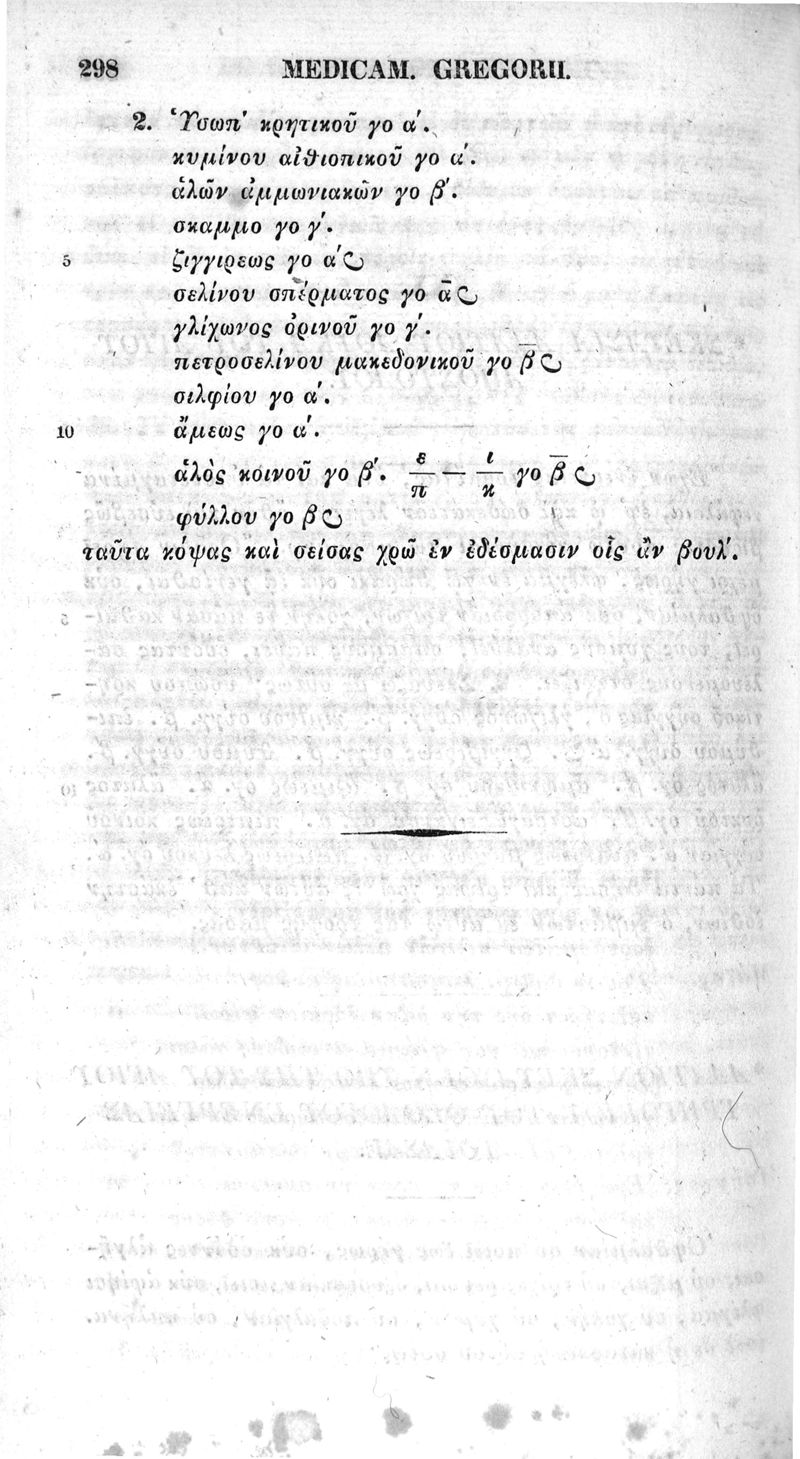 298 MEDICAM. GREGORII.
2. Ὑσωπ' κρητικοῦ γο α'.
κυμίνου αἰθιοπικοῦ γο α'.
ἁλῶν ἀμμωνιακῶν γο β'.
σκαμμο γο γ'.
5 ζιγγιρεως γο α'
σελίνου σπέρματος γο ᾱ
γλίχωνος ὀρινοῦ γο γ'.
πετροσελίνου μακεδονικοῦ γο β̅
σιλφίου γο α'.
10 ἄμεως γο α'.
ἁλὸς κοινοῦ γο β'. ε/π — ι/κ γο β̅
φύλλου γο β
ταῦτα κόψας καὶ σείσας χρῶ ἐν ἐδέσμασιν οἷς ἂν βουλ'.